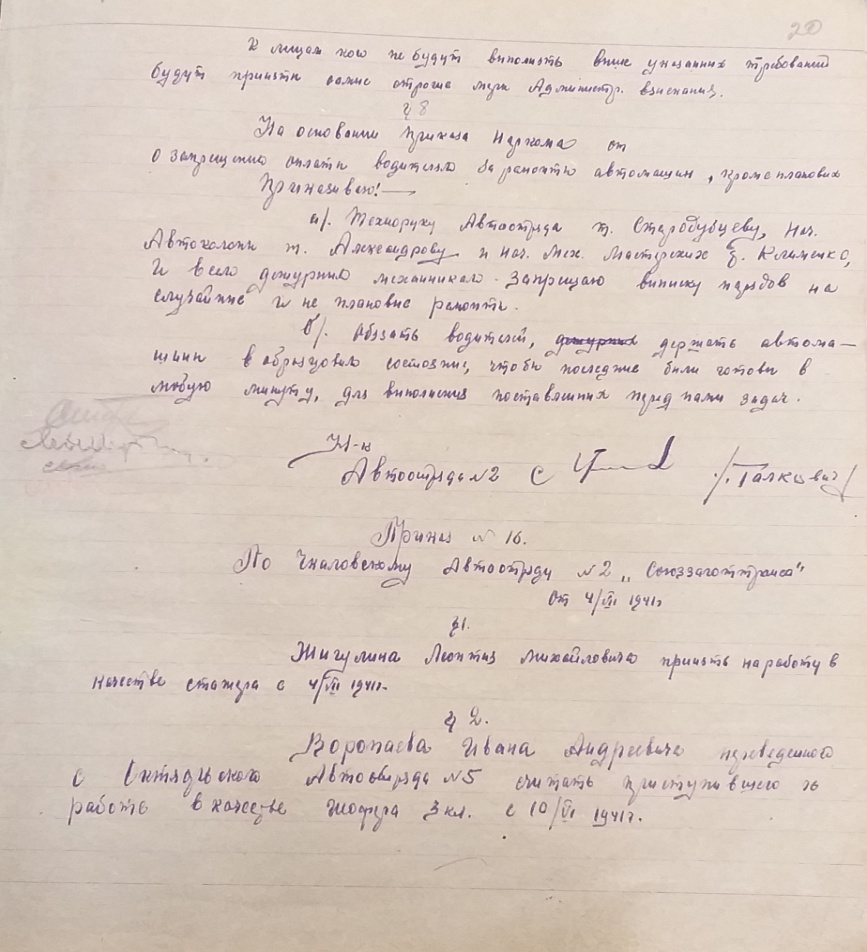 20
К лицам кого не будут выполнять выше указанных требований
будут приняты самые строгие меры Администр. взыскания.
§ 8
На основании приказа Наркома от
о запрещению оплаты водителю за ремонты автомашин, кроме плановых
Приказываю! —
а/. Техноруку Автоотряда т. Стародубцеву, нач.
Автоколоны т. Александрову и нач. мех. мастерских т. Клименко,
И всем дежурным механикам. Запрещаю выписку нарядов на
случайные и не плановые ремонты.
б/. Обязать водителей, дежурных держать автома-
шины в образцовом состоянии, чтобы последние были готовы в
любую минуту, для выполнения поставленных перед нами задач.
Н-к
Автоотряда №2 /Галкевич/
Приказ № 16.
По Чкаловскому Автоотряду №2 „Союззаготтранса"
от 4/VII 1941г.
§1.
Жигулина Леонтия Михайловича принять на работу в
качестве стажера с 4/VII 1941г.
§ 2.
Воропаева Ивана Андреевича переведенного
с Октябрьского Автоотряда №5 считать приступившего к
работе в качестве шофера 3 кл. с 10/VI 1941г.